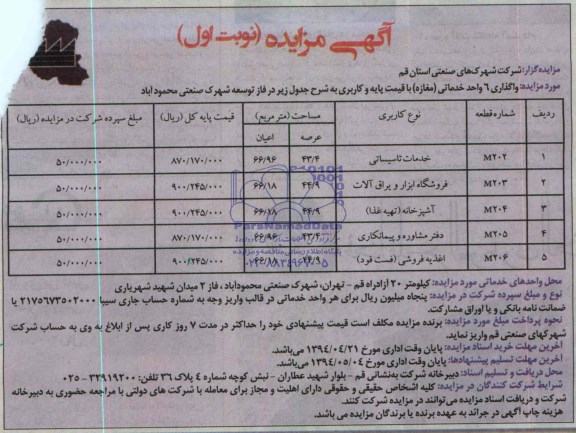 آگهی مزایده (نوبت اول)
مزایده‌گزار: شرکت شهرک‌های صنعتی استان قم
مورد مزایده: واگذاری ۶ واحد خدماتی (مغازه) با قیمت پایه و کاربری به شرح جدول زیر در فاز توسعه شهرک صنعتی محمودآباد
ردیف شماره قطعه نوع کاربری مساحت (متر مربع) قیمت پایه کل (ریال) مبلغ سپرده شرکت در مزایده (ریال)
عرصه اعیان
۱ M۲۰۲ خدمات تاسیساتی ۴۳/۴ ۶۶/۹۶ ۸۷۰/۱۷۰/۰۰۰ ۵۰/۰۰۰/۰۰۰
۲ M۲۰۳ فروشگاه ابزار و یراق آلات ۴۴/۹ ۶۶/۱۸ ۹۰۰/۲۴۵/۰۰۰ ۵۰/۰۰۰/۰۰۰
۳ M۲۰۴ آشپزخانه (تهیه غذا) ۴۴/۹ ۶۶/۱۸ ۹۰۰/۲۴۵/۰۰۰ ۵۰/۰۰۰/۰۰۰
۴ M۲۰۵ دفتر مشاوره و پیمانکاری ۴۳/۴ ۶۶/۹۶ ۸۷۰/۱۷۰/۰۰۰ ۵۰/۰۰۰/۰۰۰
۵ M۲۰۶ اغذیه فروشی (فست فود) ۴۴/۹ ۶۶/۱۸ ۹۰۰/۲۴۵/۰۰۰ ۵۰/۰۰۰/۰۰۰
ParsNamadData
پایگاه اطلاع رسانی مناقصه و مزایده
محل واحدهای خدماتی مورد مزایده: کیلومتر ۲۰ آزادراه قم - تهران، شهرک صنعتی محمودآباد، فاز ۲ میدان شهید شهریاری
نوع و مبلغ سپرده شرکت در مزایده: پنجاه میلیون ریال برای هر واحد خدماتی در قالب واریز وجه به شماره حساب جاری سیبا ۲۱۷۵۶۷۳۵۰۲۰۰۰ یا
ضمانت نامه بانکی و یا اوراق مشارکت.
نحوه پرداخت مبلغ مورد مزایده: برنده مزایده مکلف است قیمت پیشنهادی خود را حداکثر در مدت ۷ روز کاری پس از ابلاغ به وی به حساب شرکت
شهرکهای صنعتی قم واریز نماید.
آخرین مهلت خرید اسناد مزایده: پایان وقت اداری مورخ ۱۳۹۴/۰۴/۲۱ می‌باشد.
آخرین مهلت تسلیم پیشنهادها: پایان وقت اداری مورخ ۱۳۹۴/۰۵/۰۴ می‌باشد.
محل دریافت و تسلیم اسناد: دبیرخانه شرکت به‌نشانی قم - بلوار شهید عطاران - نبش کوچه شماره ۴ پلاک ۳۶ تلفن: ۳۲۹۱۹۲۰۰ - ۰۲۵
شرایط شرکت کنندگان در مزایده: کلیه اشخاص حقیقی و حقوقی دارای اهلیت و مجاز برای معامله با شرکت های دولتی با مراجعه حضوری به دبیرخانه
شرکت و دریافت اسناد مزایده می‌توانند در مزایده شرکت کنند.
هزینه چاپ آگهی در جرائد به عهده برنده یا برندگان مزایده می باشد.